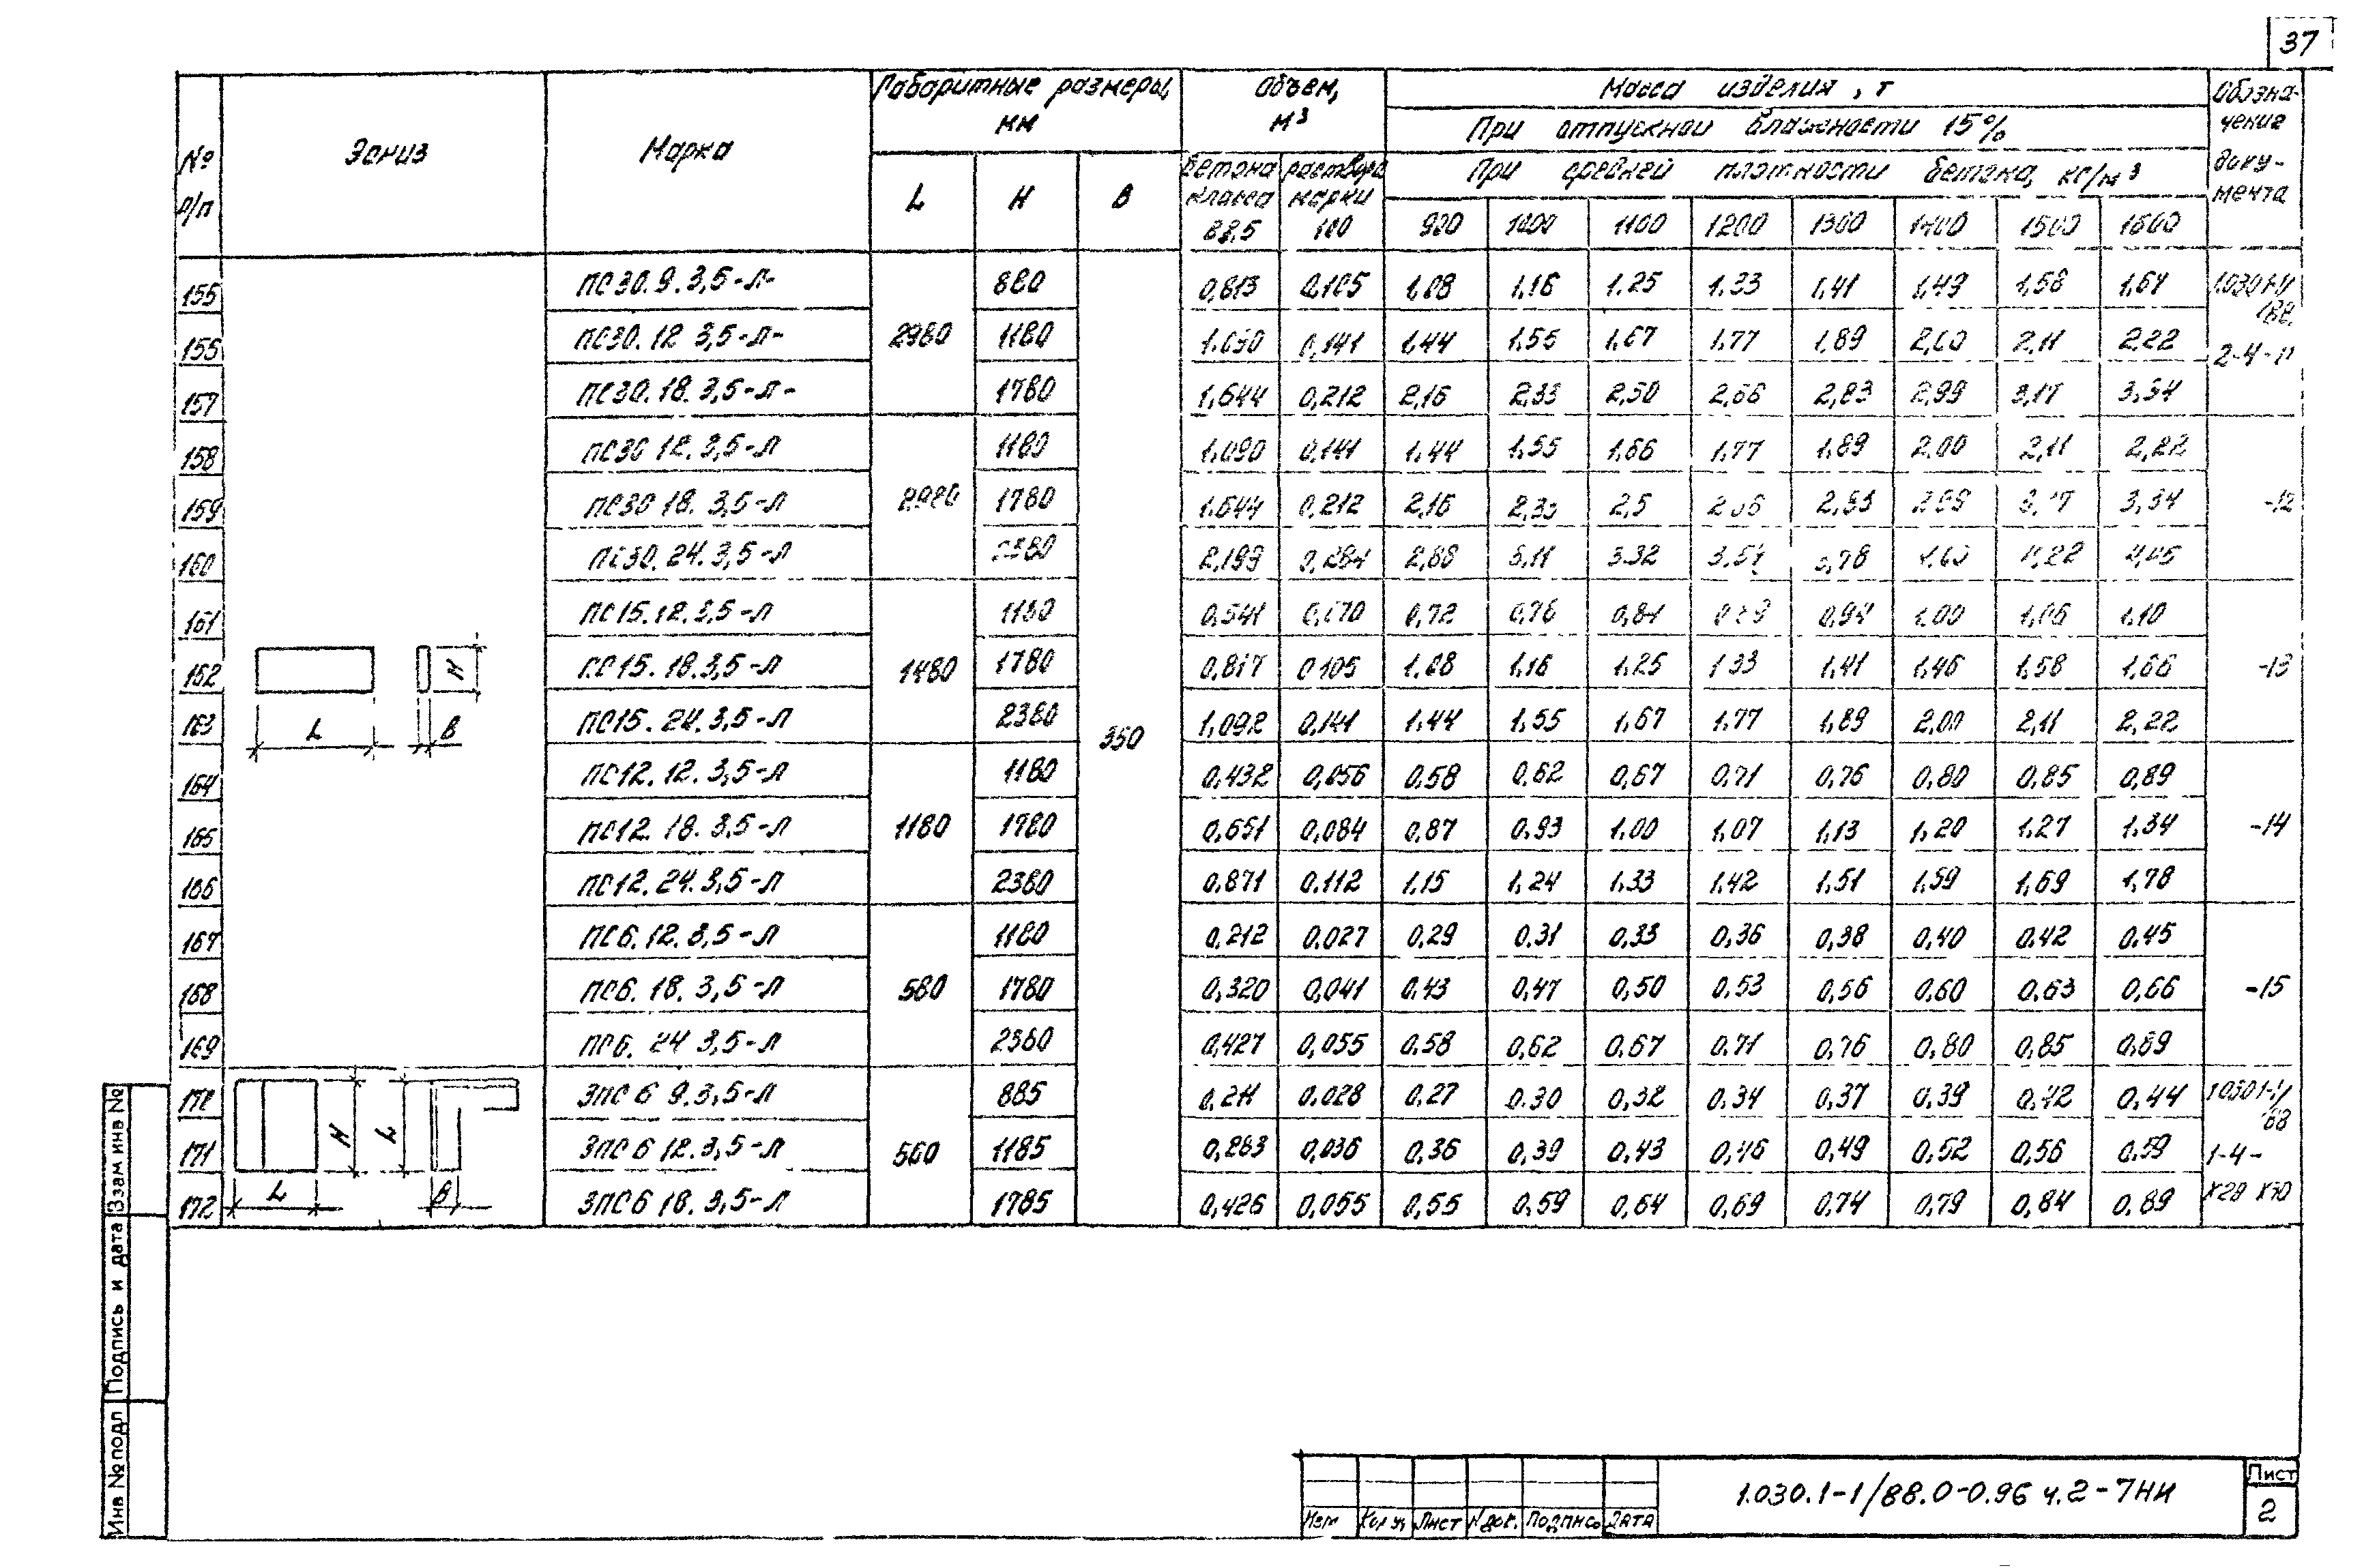 37
№ п/п | Эскиз | Марка | Габаритные размеры, мм | Объем, м³ | Масса изделия, т | Обозначение документа
При отпускной влажности 15%
L | H | B | бетона класса В3,5 | раствора марки 100 | При средней плотности бетона, кг/м³
900 | 1000 | 1100 | 1200 | 1300 | 1400 | 1500 | 1600
155 | ПС30.9.3,5-Л- | 2980 | 880 | 350 | 0,813 | 0,105 | 1,08 | 1,16 | 1.25 | 1.33 | 1,41 | 1,49 | 1,58 | 1,67 | 1.030.1-1/88.
155 | ПС30.12 3,5-Л- | 1180 | 1.090 | 0,141 | 1,44 | 1,55 | 1,67 | 1,77 | 1,89 | 2,00 | 2,11 | 2,22 | 2-4-11
157 | ПС30.18.3,5-Л- | 1780 | 1,644 | 0,212 | 2,16 | 2,33 | 2,50 | 2,66 | 2,83 | 2,99 | 3,17 | 3,34
158 | ПС30 12.3,5-Л | 2980 | 1180 | 1,090 | 0,141 | 1,44 | 1,55 | 1,66 | 1,77 | 1,89 | 2,00 | 2,11 | 2,22 | -12
159 | ПС30 18. 3,5-Л | 1780 | 1.644 | 0,212 | 2,16 | 2,33 | 2,5 | 2,66 | 2,83 | 2,99 | 3,17 | 3,34
160 | ПС30.24.3,5-Л | 2380 | 2,199 | 0,284 | 2,88 | 3,11 | 3.32 | 3.54 | 3,78 | 4,22 | 4,45
161 | ПС15.12.3,5-Л | 1480 | 1180 | 0,541 | 0,070 | 0,72 | 0,78 | 0,84 | 0,89 | 0,94 | 1,00 | 1,06 | 1,10 | -13
162 | ПС15.18.3,5-Л | 1780 | 0,817 | 0,105 | 1,08 | 1,16 | 1,25 | 1,33 | 1,41 | 1,46 | 1,58 | 1,66
163 | ПС15.24.3,5-Л | 2380 | 1,092 | 0,141 | 1,44 | 1,55 | 1,67 | 1,77 | 1,89 | 2,00 | 2,11 | 2,22
164 | ПС12.12.3,5-Л | 1180 | 1180 | 0,432 | 0,056 | 0,58 | 0,62 | 0,67 | 0,71 | 0,76 | 0,80 | 0,85 | 0,89 | -14
165 | ПС12.18.3,5-Л | 1780 | 0,651 | 0,084 | 0,87 | 0,93 | 1,00 | 1,07 | 1,13 | 1,20 | 1,27 | 1,34
166 | ПС12.24.3,5-Л | 2380 | 0,871 | 0,112 | 1,15 | 1,24 | 1,33 | 1,42 | 1,51 | 1,59 | 1,69 | 1,78
167 | ПС6.12.3,5-Л | 580 | 1180 | 0,212 | 0,027 | 0,29 | 0,31 | 0,33 | 0,36 | 0,38 | 0,40 | 0,42 | 0,45 | -15
168 | ПС6.18.3,5-Л | 1780 | 0,320 | 0,041 | 0,43 | 0,47 | 0,50 | 0,53 | 0,56 | 0,60 | 0,63 | 0,66
169 | ПС6. 24 3,5-Л | 2380 | 0,427 | 0,055 | 0,58 | 0,62 | 0,67 | 0,71 | 0,76 | 0,80 | 0,85 | 0,89
L | B | H
172 | 3ПС 6 9.3,5-Л | 560 | 885 | 0,211 | 0.028 | 0,27 | 0.30 | 0,32 | 0.34 | 0,37 | 0,39 | 0,42 | 0,44 | 1.030.1-1/88
171 | 3ПС 6 12.3,5-Л | 1185 | 0,283 | 0,036 | 0,36 | 0,39 | 0,43 | 0,46 | 0,49 | 0,52 | 0,56 | 0.59 | 1-4-
172 | 3ПС6 18.3,5-Л | 1785 | 0,426 | 0,055 | 0,55 | 0,59 | 0,64 | 0,69 | 0,74 | 0,79 | 0,84 | 0,89
L | B | H | L
Взам инв №
Подпись и дата
Инв № подл
Изм | Кол уч | Лист | N док. | Подпись | Дата
1.030.1-1/88.0-0.96 ч.2-7НИ
Лист
2